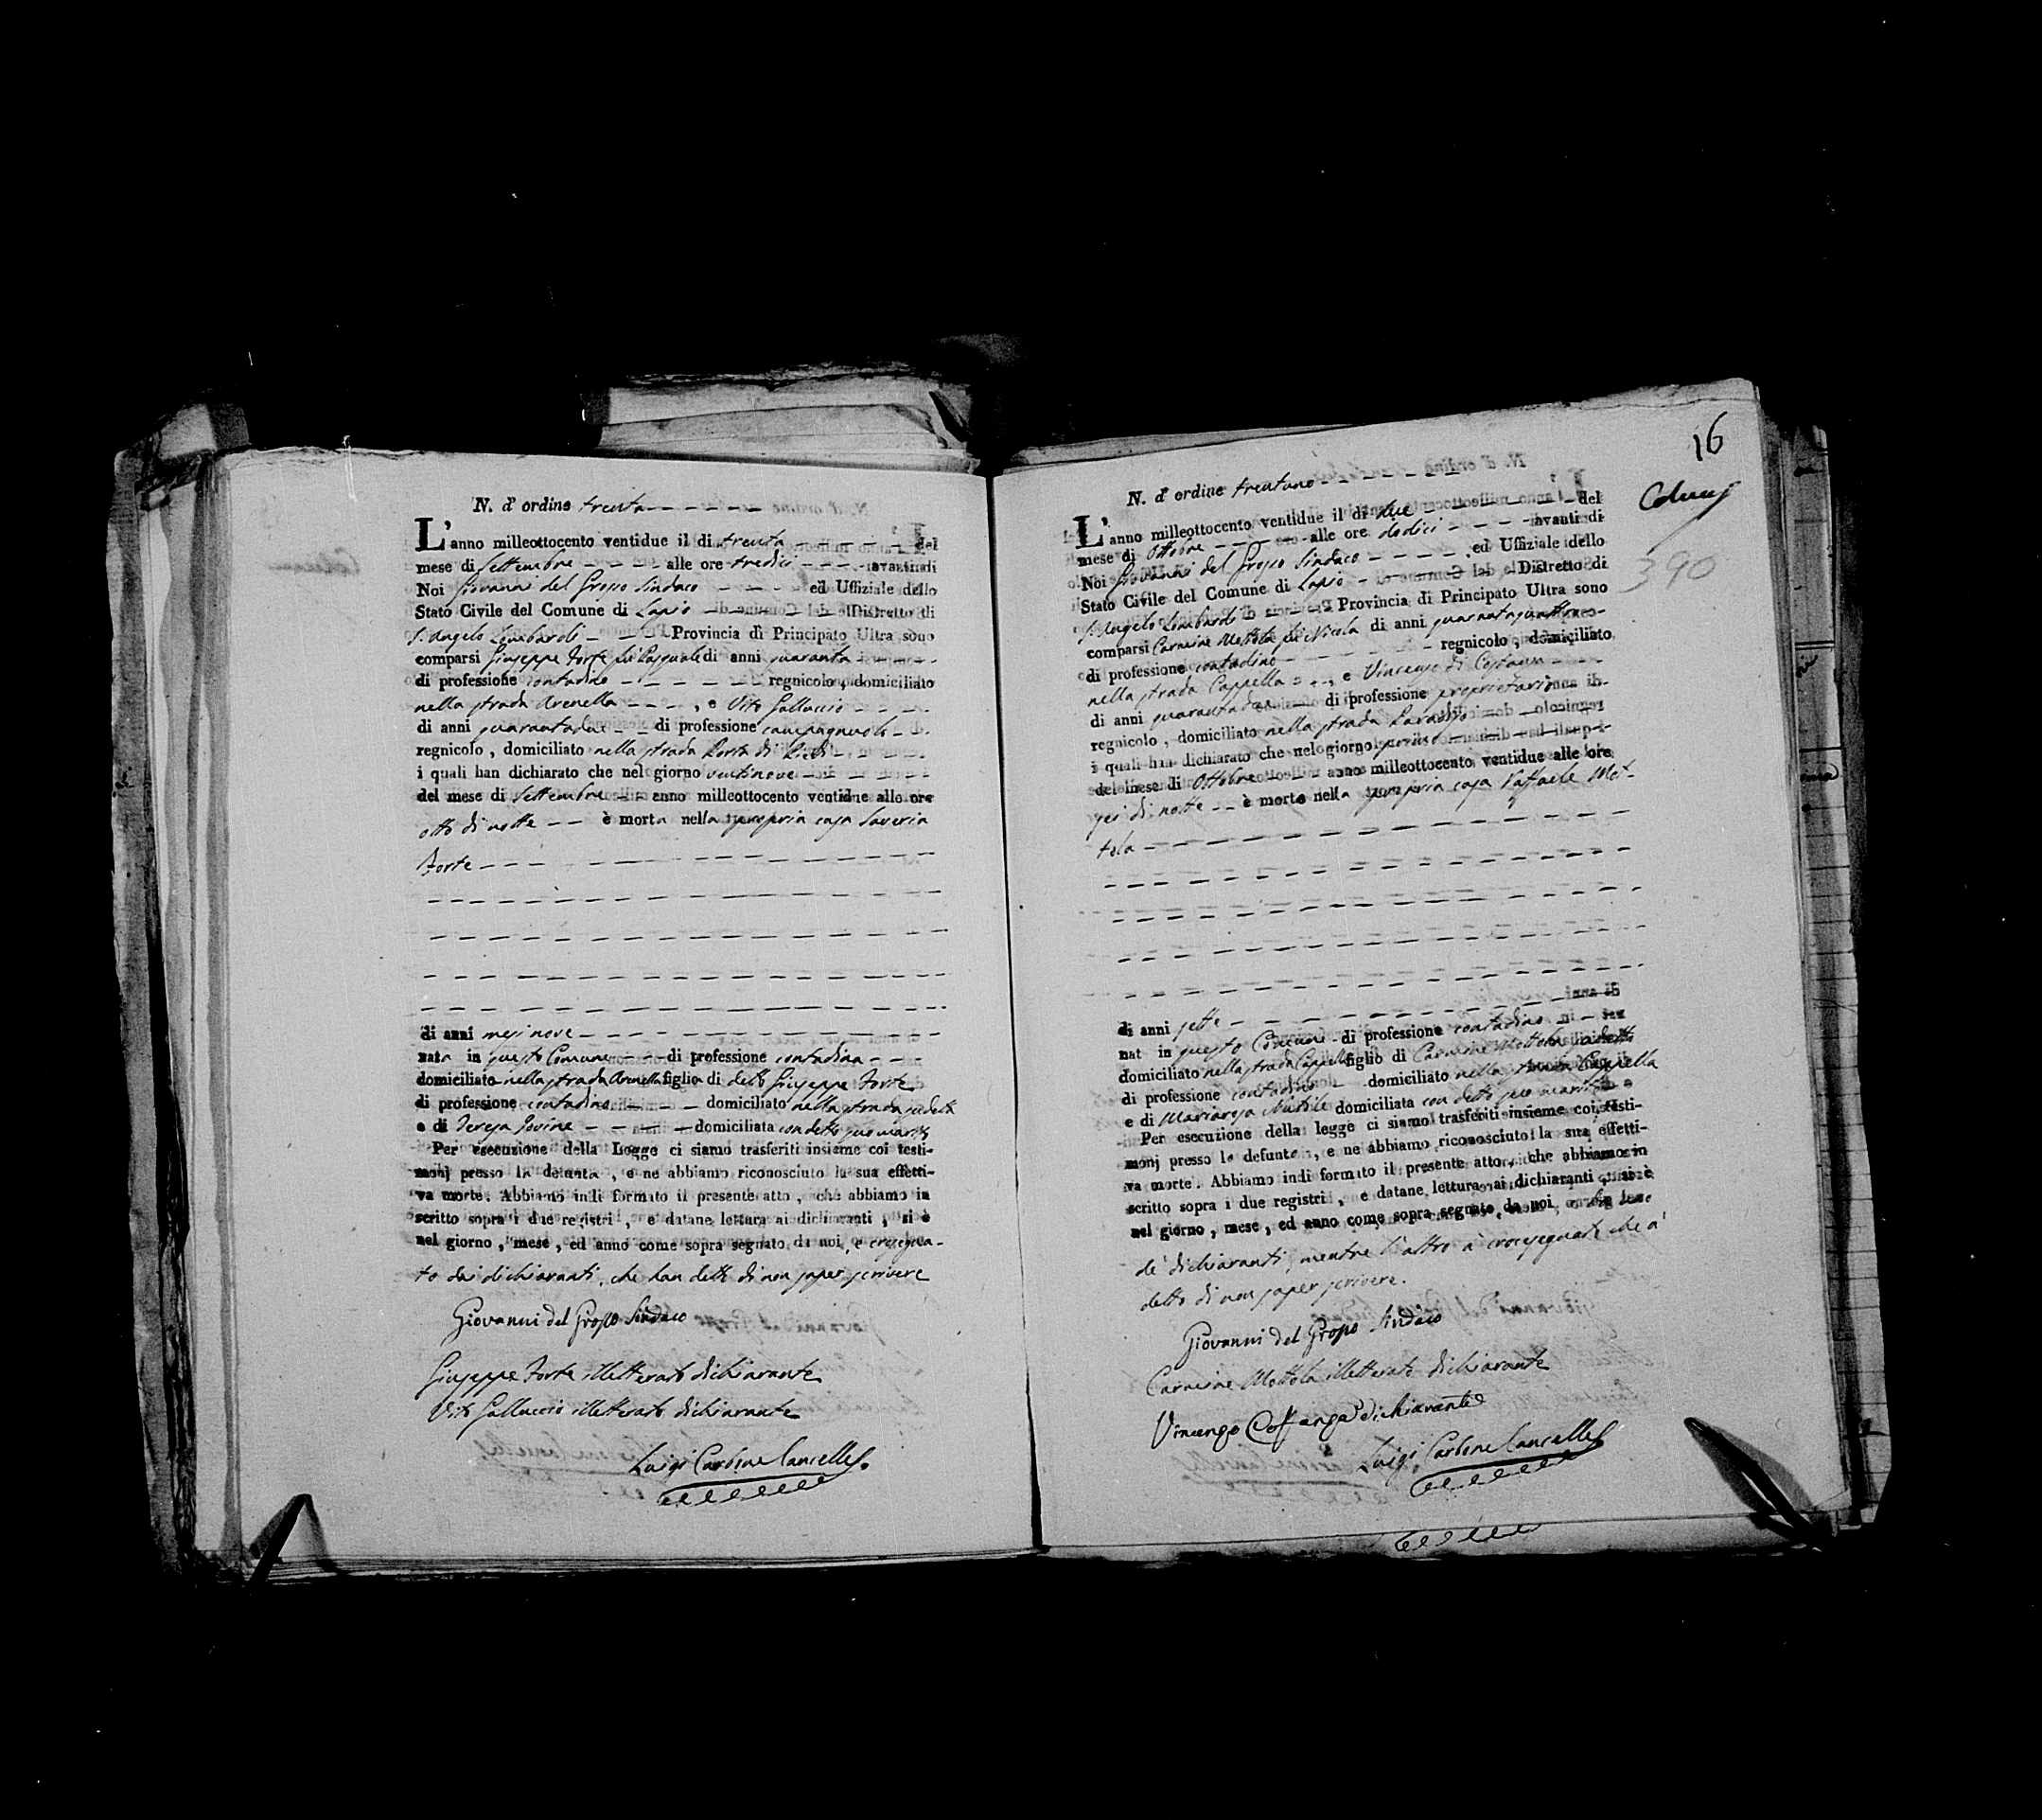 N. d' ordine trenta
L'anno milleottocento ventidue il di trenta del
mese di Settembre alle ore tredici avanti di
Noi Giovanni del Grosso Sindaco ed Uffiziale dello
Stato Civile del Comune di Lapio Distretto di
S. Angelo Lombardi Provincia di Principato Ultra sono
comparsi Giuseppe Forte fu Pasquale di anni quaranta
di professione contadino regnicolo, domiciliato
nella strada Arenella, e Vito Galluccio
di anni quarantadue di professione campagnuolo
regnicolo, domiciliato nella strada Porta di
i quali han dichiarato che nel giorno ventinove
del mese di Settembre anno milleottocento ventidue alle ore
otto di notte è morta nella propria casa Saveria
Forte
di anni mesi nove
nata in questo Comune di professione contadina
domiciliata nella strada Arenella figlia di detto Giuseppe Forte
di professione contadino domiciliato nella strada sudetta
e di Teresa Iovine domiciliata con detto suo marito
Per esecuzione della Legge ci siamo trasferiti insieme coi testi-
monj presso la defunta, e ne abbiamo riconosciuto la sua effetti-
va morte. Abbiamo indi formato il presente atto, che abbiamo in
scritto sopra i due registri, e datane lettura ai dichiaranti, si è
nel giorno, mese, ed anno come sopra segnato da noi, e crocesegna-
to dai dichiaranti, che han detto di non saper scrivere
Giovanni del Grosso Sindaco
Giuseppe Forte illetterato dichiarante
Vito Galluccio illetterato dichiarante
Luigi Carbone Cancelle.
16
390
N. d' ordine trentuno
L'anno milleottocento ventidue il di due del
mese di Ottobre alle ore dodici avanti di
Noi Giovanni del Grosso Sindaco ed Uffiziale dello
Stato Civile del Comune di Lapio Distretto di
S. Angelo Lombardi Provincia di Principato Ultra sono
comparsi Carmine Mottola fu Nicola di anni quarantaquattro
di professione contadino regnicolo, domiciliato
nella strada Cappella, e Vincenzo di Costanza
di anni quarantadue di professione proprietario
regnicolo, domiciliato nella strada Paradiso
i quali han dichiarato che nel giorno primo
del mese di Ottobre anno milleottocento ventidue alle ore
sei di notte è morto nella propria casa Raffaele Mot-
tola
di anni sette
nat in questo Comune di professione contadino
domiciliato nella strada Cappella figlio di Carmine Mottola sudetto
di professione contadino domiciliato nella strada Cappella
e di Mariarosa Nutile domiciliata con detto suo marito
Per esecuzione della legge ci siamo trasferiti insieme coi testi-
monj presso lo defunto, e ne abbiamo riconosciuto la sua effetti-
va morte. Abbiamo indi formato il presente atto, che abbiamo in
scritto sopra i due registri, e datane lettura ai dichiaranti, si è
nel giorno, mese, ed anno come sopra segnato da noi,
de' dichiaranti, mentre l'altro à crocesegnato che à
detto di non saper scrivere.
Giovanni del Grosso Sindaco
Carmine Mottola illetterato dichiarante
Vincenzo Costanza dichiarante
Luigi Carbone Cancelle